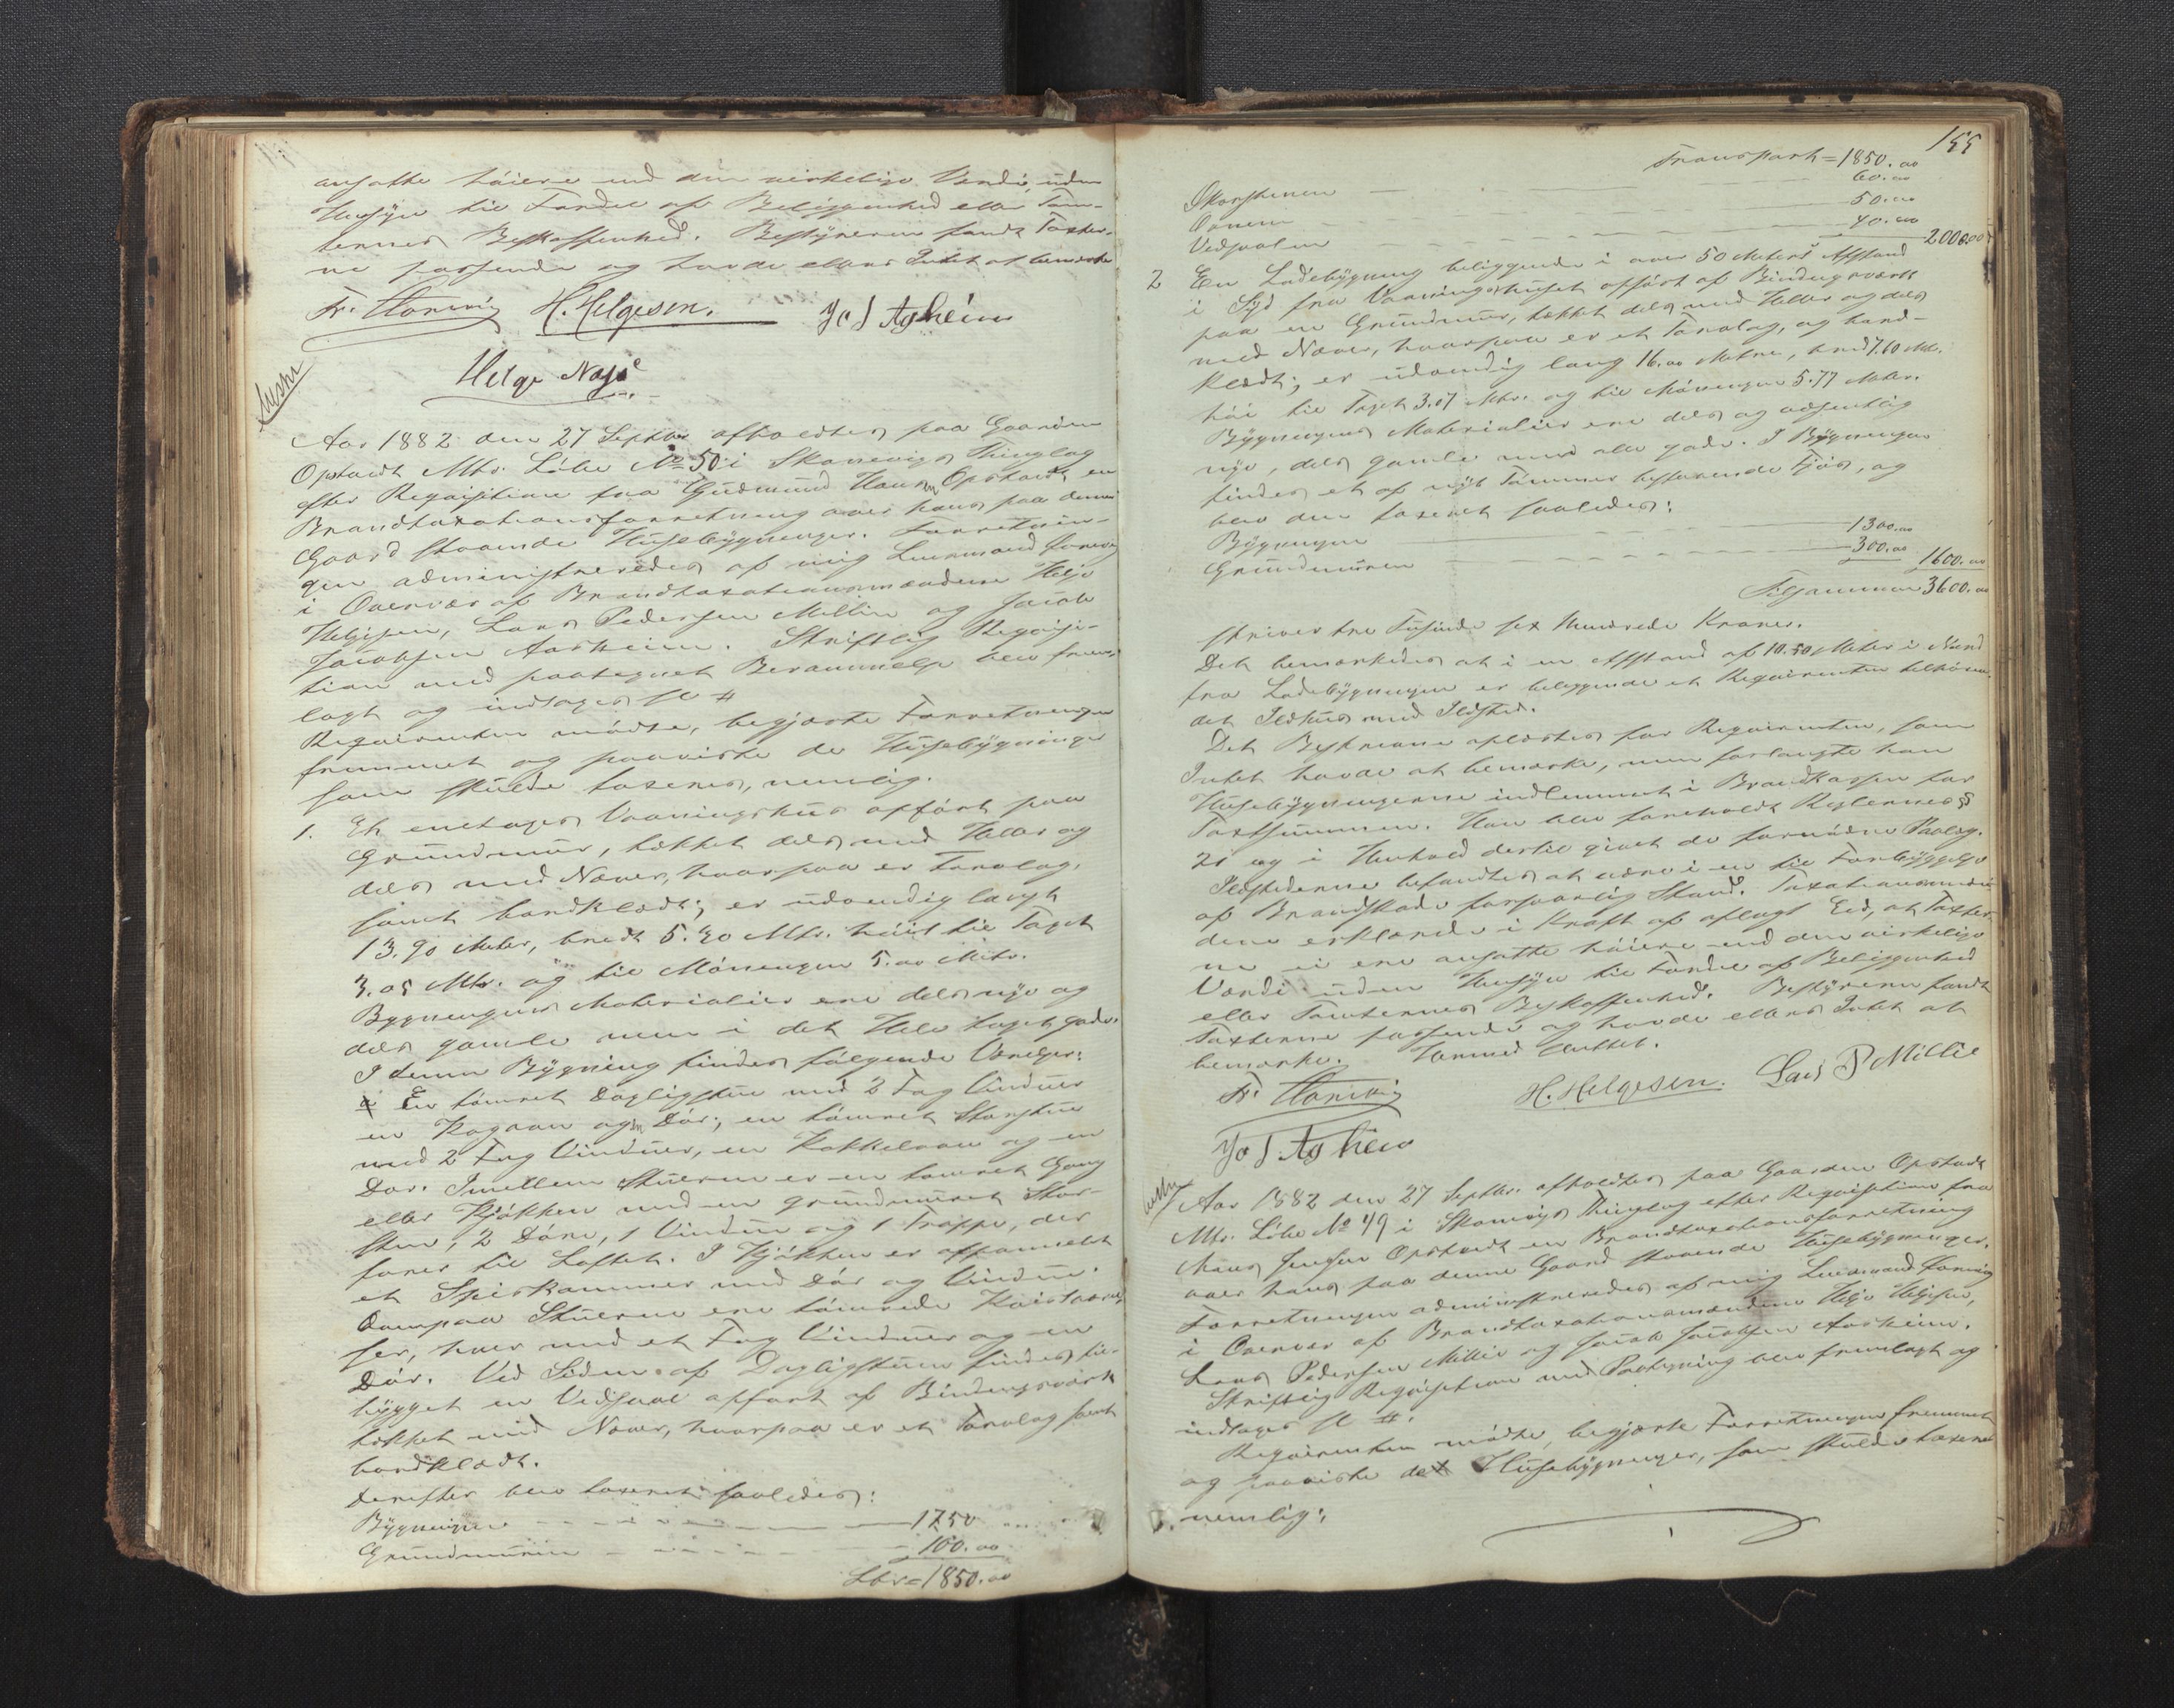 ansatte høiere end den virkelige Værdi, uden
Hensyn til Fordel af Beliggenhed eller Tom-
ternes Beskaffenhed. Bestyreren fandt Taxter-
ne passende og havde ellers Intet at bemærke
Fr. H. Helgesen. Jo J Asheim
Helge
Aar 1882 den 27 Septbr afholdtes paa Gaarden
Opstadt Mtr. Løbe No 50 i Skonevigs Thinglag
efter Reqvisition fra Gudmund Hansen Opstadt, en
Brandtaxationsforretning over hans paa denne
Gaard staaende Husebygninger. Forretnin-
gen administreredes af mig Lensmand
i Overvær af Brandtaxationsmændene Helge
Helgesen, Lars Pedersen Millie og Jacob
Jacobsen Aasheim. Skriftlig Reqvisi-
tion med paategnet Berammelse blev frem-
lagt og indtages sl #
Reqvirenten mødte, begjærte Forretningen
fremmet og paaviste de Husebygninger
som skulde taxeres, nemlig.
1. Et enetages Vaaningshus opført paa
Grundmur, tækket dels med Heller og
dels med Næver, hvorpaa er Torvlag,
samt bordklædt; er udvendig langt
13.90 Meter, bredt 5.20 Mtr. høit til Taget
3.05 Mtr. og til Mønningen 5.00 Mtr.
Bygningens Materialier ere dels nye og
dels gamle men i det Hele taget gode.
I denne Bygning findes følgende Værelser:
En tømret Dagligstue med 2 Fag Vinduer
en Kogeovn og en Dør; en tømret Storstue
med 2 Fag Vinduer, en Kakkelovn og en
Dør. Imellem Stuerne er en tømret Gang
eller Kjøkken med en grundmuret Skor-
sten, 2 Døre, 1 Vindue og 1 Trappe, der
fører til Loftet. I Kjøkken er afpannelet
et Spiskammer med Dør og Vindue.
Ovenpaa Stuerne ere tømrede Kvistværel-
ser, hver med et Fag Vinduer og en
Dør. Ved Siden af Dagligstuen findes til-
bygget en Vedsval opført af Bindingsværk
tækket med Næver, hvorpaa er et Torvlag samt
bordklædt.
Derefter blev taxeret saaledes:
Bygningen 1750
Grundmuren 100.00
Lbr = 1850.00
155
Transport = 1850.00
Skorstenen 60.00
Ovnene 50.00
Vedsvalen 40.00 2000.00
2 En Ladebygning beliggende i over 50 Meters Afstand
i Syd fra Vaaningshuset opført af Bindingsværk
paa en Grundmur, tækket dels med Heller og dels
med Næver, hvorpaa er et Torvlag, og bord-
klædt; er udvendig lang 16.00 Metre, bred 7.60 Mtr.
høi til Taget 3.07 Mtr. og til Mønningen 5.77 Meter.
Bygningens Materialier ere dels og væsentlig
nye, dels gamle men alle gode. I Bygningen
findes et af nyt Tømmer bestaaende Fjøs, og
blev den taxeret saaledes:
Bygningen 1300.00
Grundmuren 300.00 1600.00
Tilsammen 3600.00
skriver tre Tusinde sex Hundrede Kroner.
Det bemærkedes at i en Afstand af 10.50 Meter i Nord
fra Ladebygningen er beliggende et Reqvirenten tilhøren-
det Ildhus med Ildsted.
Det Beskrevne oplæstes for Reqvirenten, som
Intet havde at bemærke, men forlangte han
Husebygningerne indlemmet i Brandkassen for
Taxtsummen. Han blev foreholdt Reglernes §
21 og i Henhold dertil givet de fornødne Paalæg.
Ildstederne befandtes at være i en til Forebyggelse
af Brandskade forsvarlig Stand. Taxationsmæn-
dene erklærede i Kraft af aflagt Eed, at Taxter-
ne ei ere ansatte høiere end den virkelige
Værdi uden Hensyn til Fordel af Beliggenhed
eller Tomternes Beskaffenhed. Bestyreren fandt
Taxterne passende og havde ellers Intet at
bemærke. Dermed sluttet.
Fr. H. Helgesen. Lars P Millie
Jo J Asheim
Aar 1882 den 27 Septbr. afholdtes paa Gaarden Opstadt
Mtr. Løbe No 49 i Skonevigs Thinglag efter Reqvisition fra
Mons Jensen Opstadt en Brandtaxationsforretning
over hans paa denne Gaard staaende Husebygninger.
Forretningen administreredes af mig Lensmand
i Overvær af Brandtaxationsmændene Helge Helgesen,
Lars Pedersen Millie og Jacob Jacobsen Aasheim.
Skriftlig Reqvisition med Paategning blev fremlagt og
indtages sl #.
Reqvirenten mødte, begjærte Forretningen fremmet
og paaviste de Husebygninger, som skulde taxeres
nemlig: